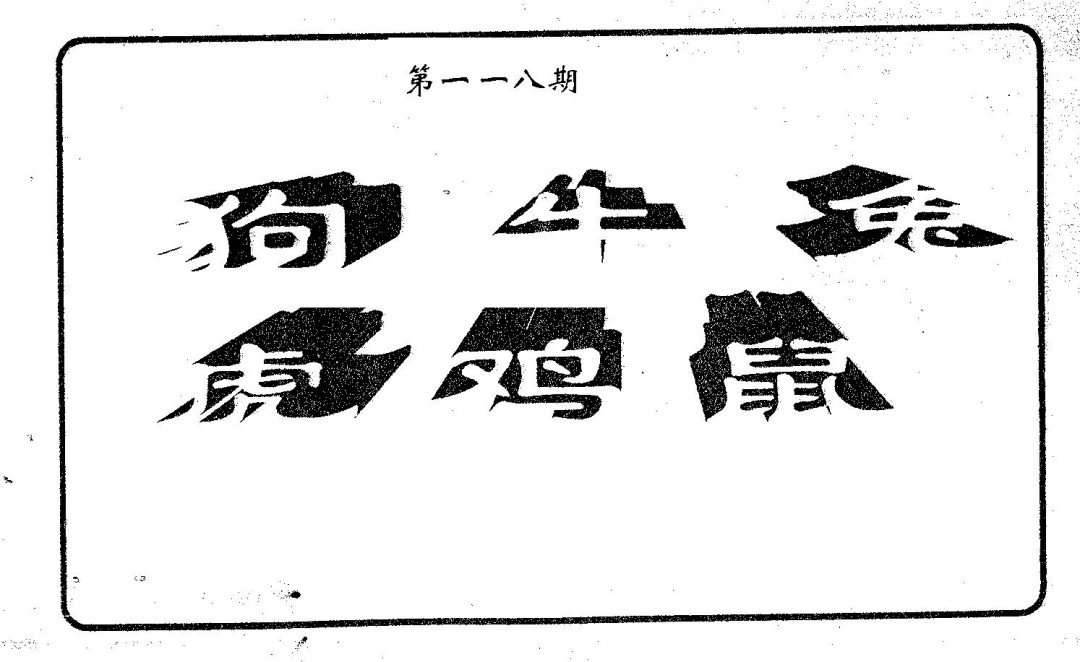 第一一八期
狗 牛 兔
虎 鸡 鼠